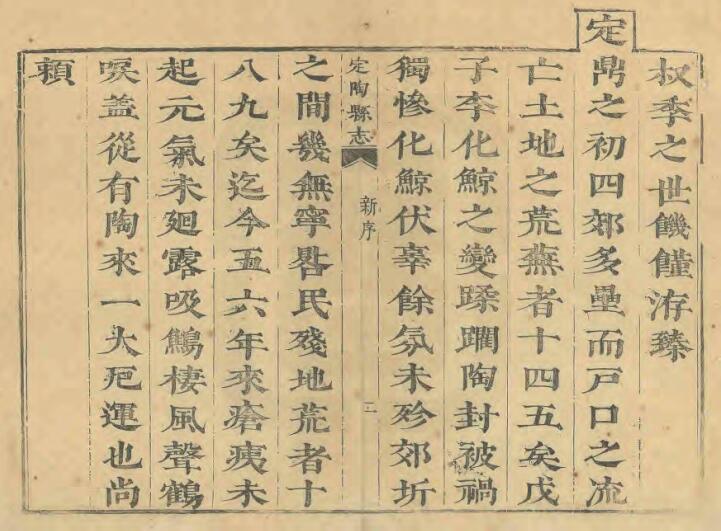 叔季之世饑饉洊臻
定
鼎之初四郊多壘而戸口之流
亡土地之荒蕪者十四五矣戊
子李化鯨之變蹂躪陶封被禍
獨慘化鯨伏辜餘氛未殄郊圻
定陶縣志
新序
二
之間幾無寧晷民殘地荒者十
八九矣迄今五六年來瘡痍未
起元氣未廻露吸鷦棲風聲鶴
唳盖從有陶來一大厄運也尚
頼